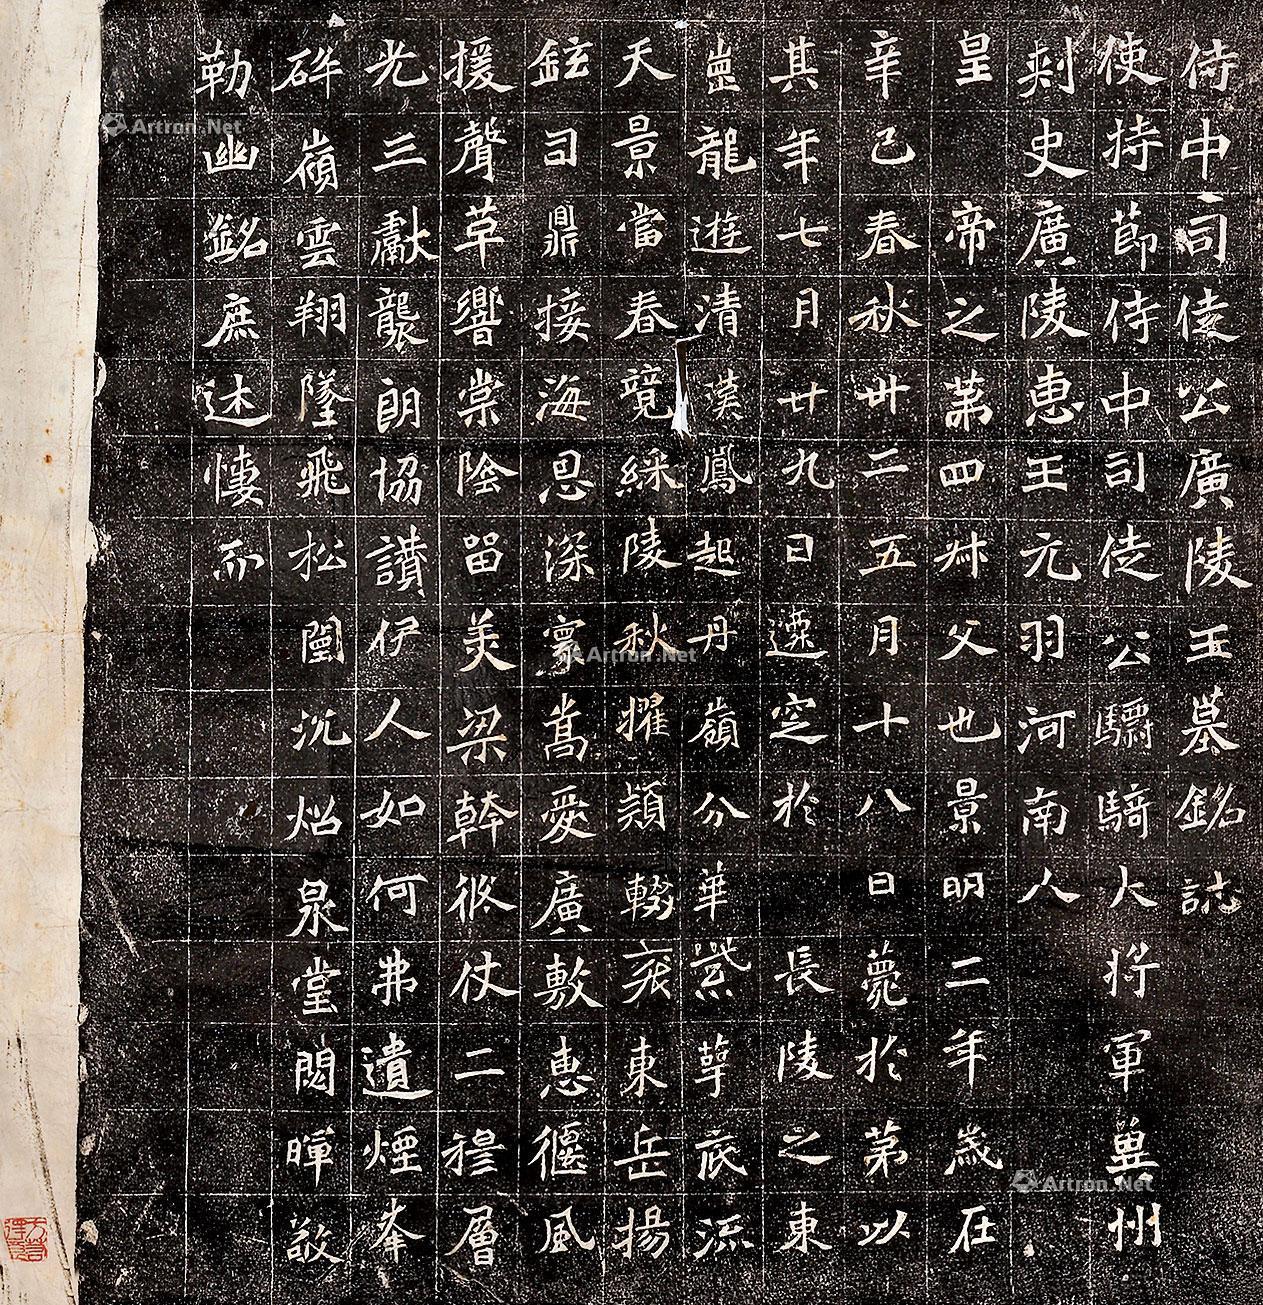 侍中司徒公廣陵王墓銘誌
使持節侍中司徒公驃騎大將軍冀州
刺史廣陵惠王元羽河南人
皇帝之第四叔父也景明二年歲在
辛巳春秋卅二五月十八日薨於第以
其年七月廿九日遷窆於長陵之東
崗龍遊清漢鳳起丹嶺分華紫萼底流
天景當春競綵陵秋擢穎輟衮東岳揚
鉉司鼎接海恩深寥嵩愛廣敷惠偃風
援聲草響棠陰留美梁幹攸仗二穆層
光三獻襲朗協讚伊人如何弗遺煙峯
碎嶺雲翔墜飛松闈沉焰泉堂閟暉敬
勒幽銘庶述悽而
Artron.Net
Artron.Net
Artron.Net